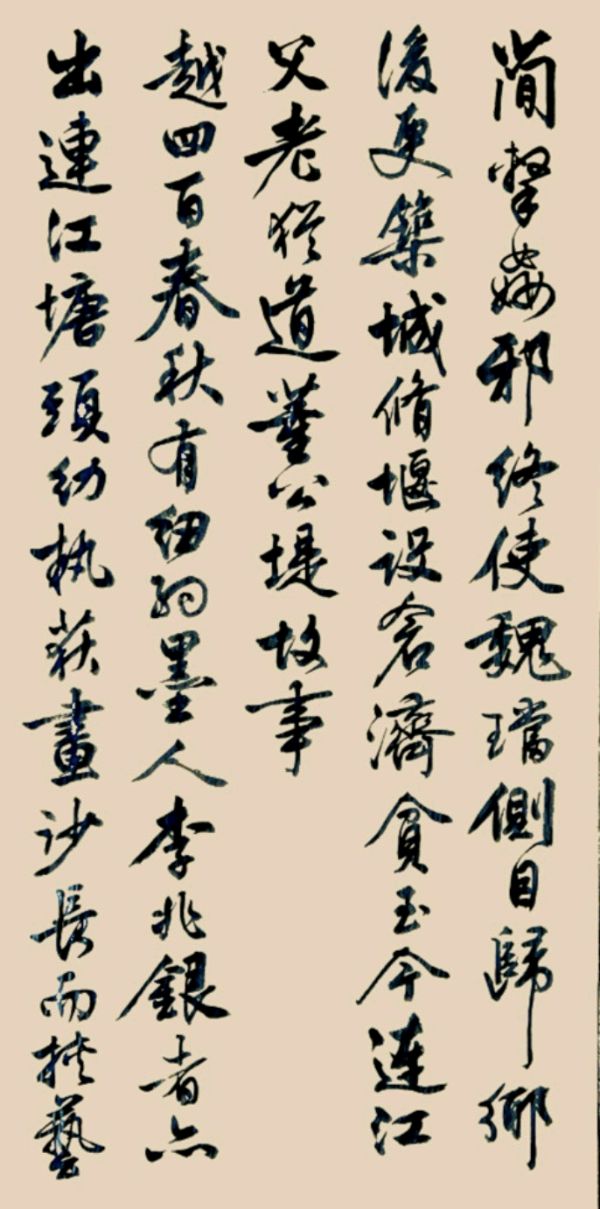 簡擊姦邪終使魏璫側目歸鄉
後更築城脩堰設倉濟貧至今連江
父老猶道董公堤故事
越四百春秋有紉翰墨人李兆銀者亦
出連江塘頭幼執荻畫沙長而挾藝